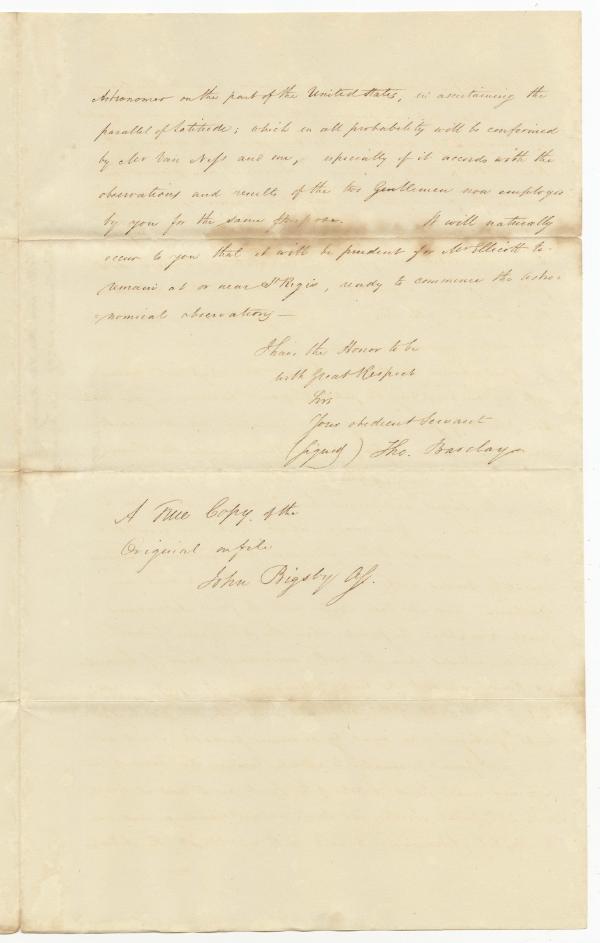 Astronomer on the part of the United States, in ascertaining the
parallel of Latitude; which in all probability will be confirmed
by Mr Van Ness and me, especially if it accords with the
observations and results of the two Gentlemen now employed
by you for the same purpose. It will naturally
occur to you that it will be prudent for Mr Ellicott to
remain at or near St Regis, ready to commence the astro-
=nomical observations—
I have the Honor to be
with Great Respect
Sir
Your obedient Servant
(signed) Tho. Barclay
A True Copy of the
Original on file
John Bigsby